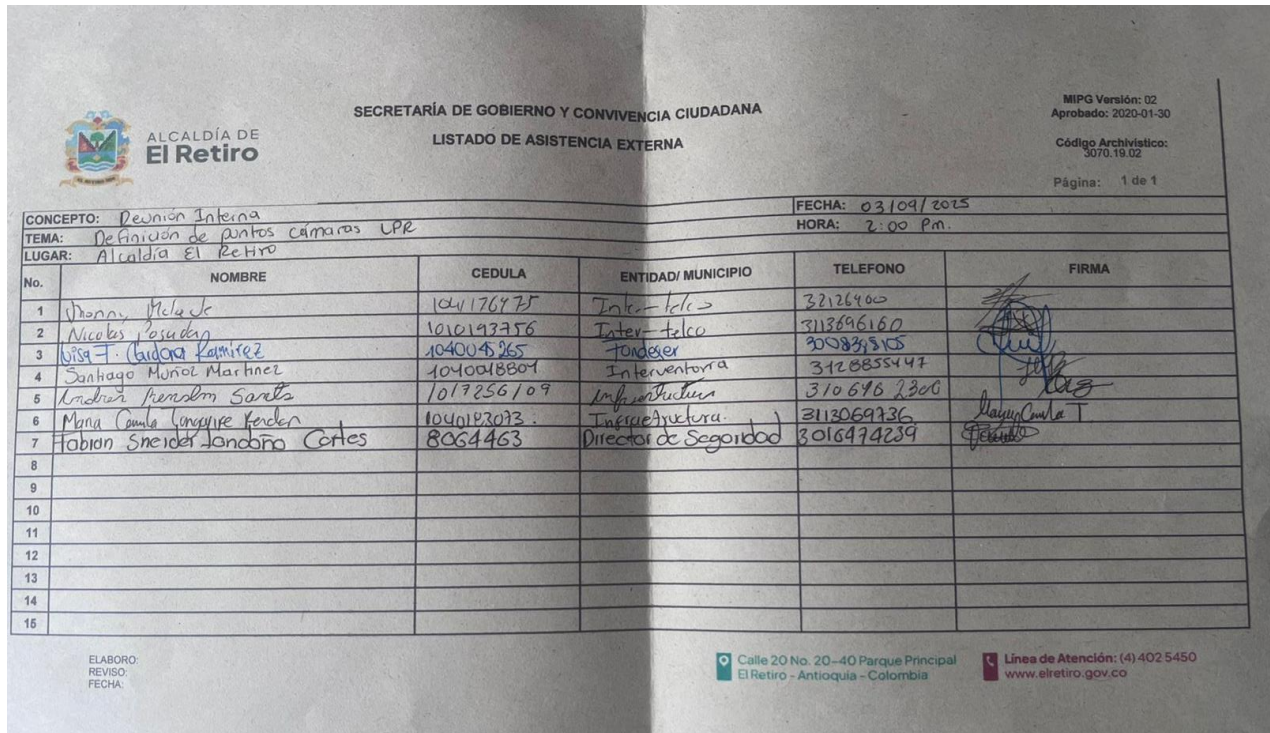 ALCALDÍA DE
El Retiro
SECRETARÍA DE GOBIERNO Y CONVIVENCIA CIUDADANA
LISTADO DE ASISTENCIA EXTERNA
MIPG Versión: 02
Aprobado: 2020-01-30
Código Archivístico:
3070.19.02
Página: 1 de 1
CONCEPTO: Reunión Interna
FECHA: 03/09/2025
TEMA: Definición de puntos cámaras LPR
HORA: 2:00 Pm.
LUGAR: Alcaldía El Retiro
No. NOMBRE CEDULA ENTIDAD/ MUNICIPIO TELEFONO FIRMA
1 Jhonny 1041176475 Inter-telco 32126400
2 Nicolas Posada 1010193756 Inter-telco 3113696160
3 Luisa F. Cardona Ramirez 1040045265 Fondeser 3008398105
4 Santiago Muñoz Martinez 1040048804 Interventoria 3128855447
5 Andres 1017256109 Infraestructura 310 646 2300
6 Maria Camila 1040183073. Infraestructura. 3113069736 Camila T.
7 Fabian Sneider Londoño Cortes 8064463 Director de Seguridad 3016474239
8
9
10
11
12
13
14
15
ELABORO:
REVISO:
FECHA:
Calle 20 No. 20-40 Parque Principal
El Retiro - Antioquia - Colombia
Línea de Atención: (4) 402 5450
www.elretiro.gov.co